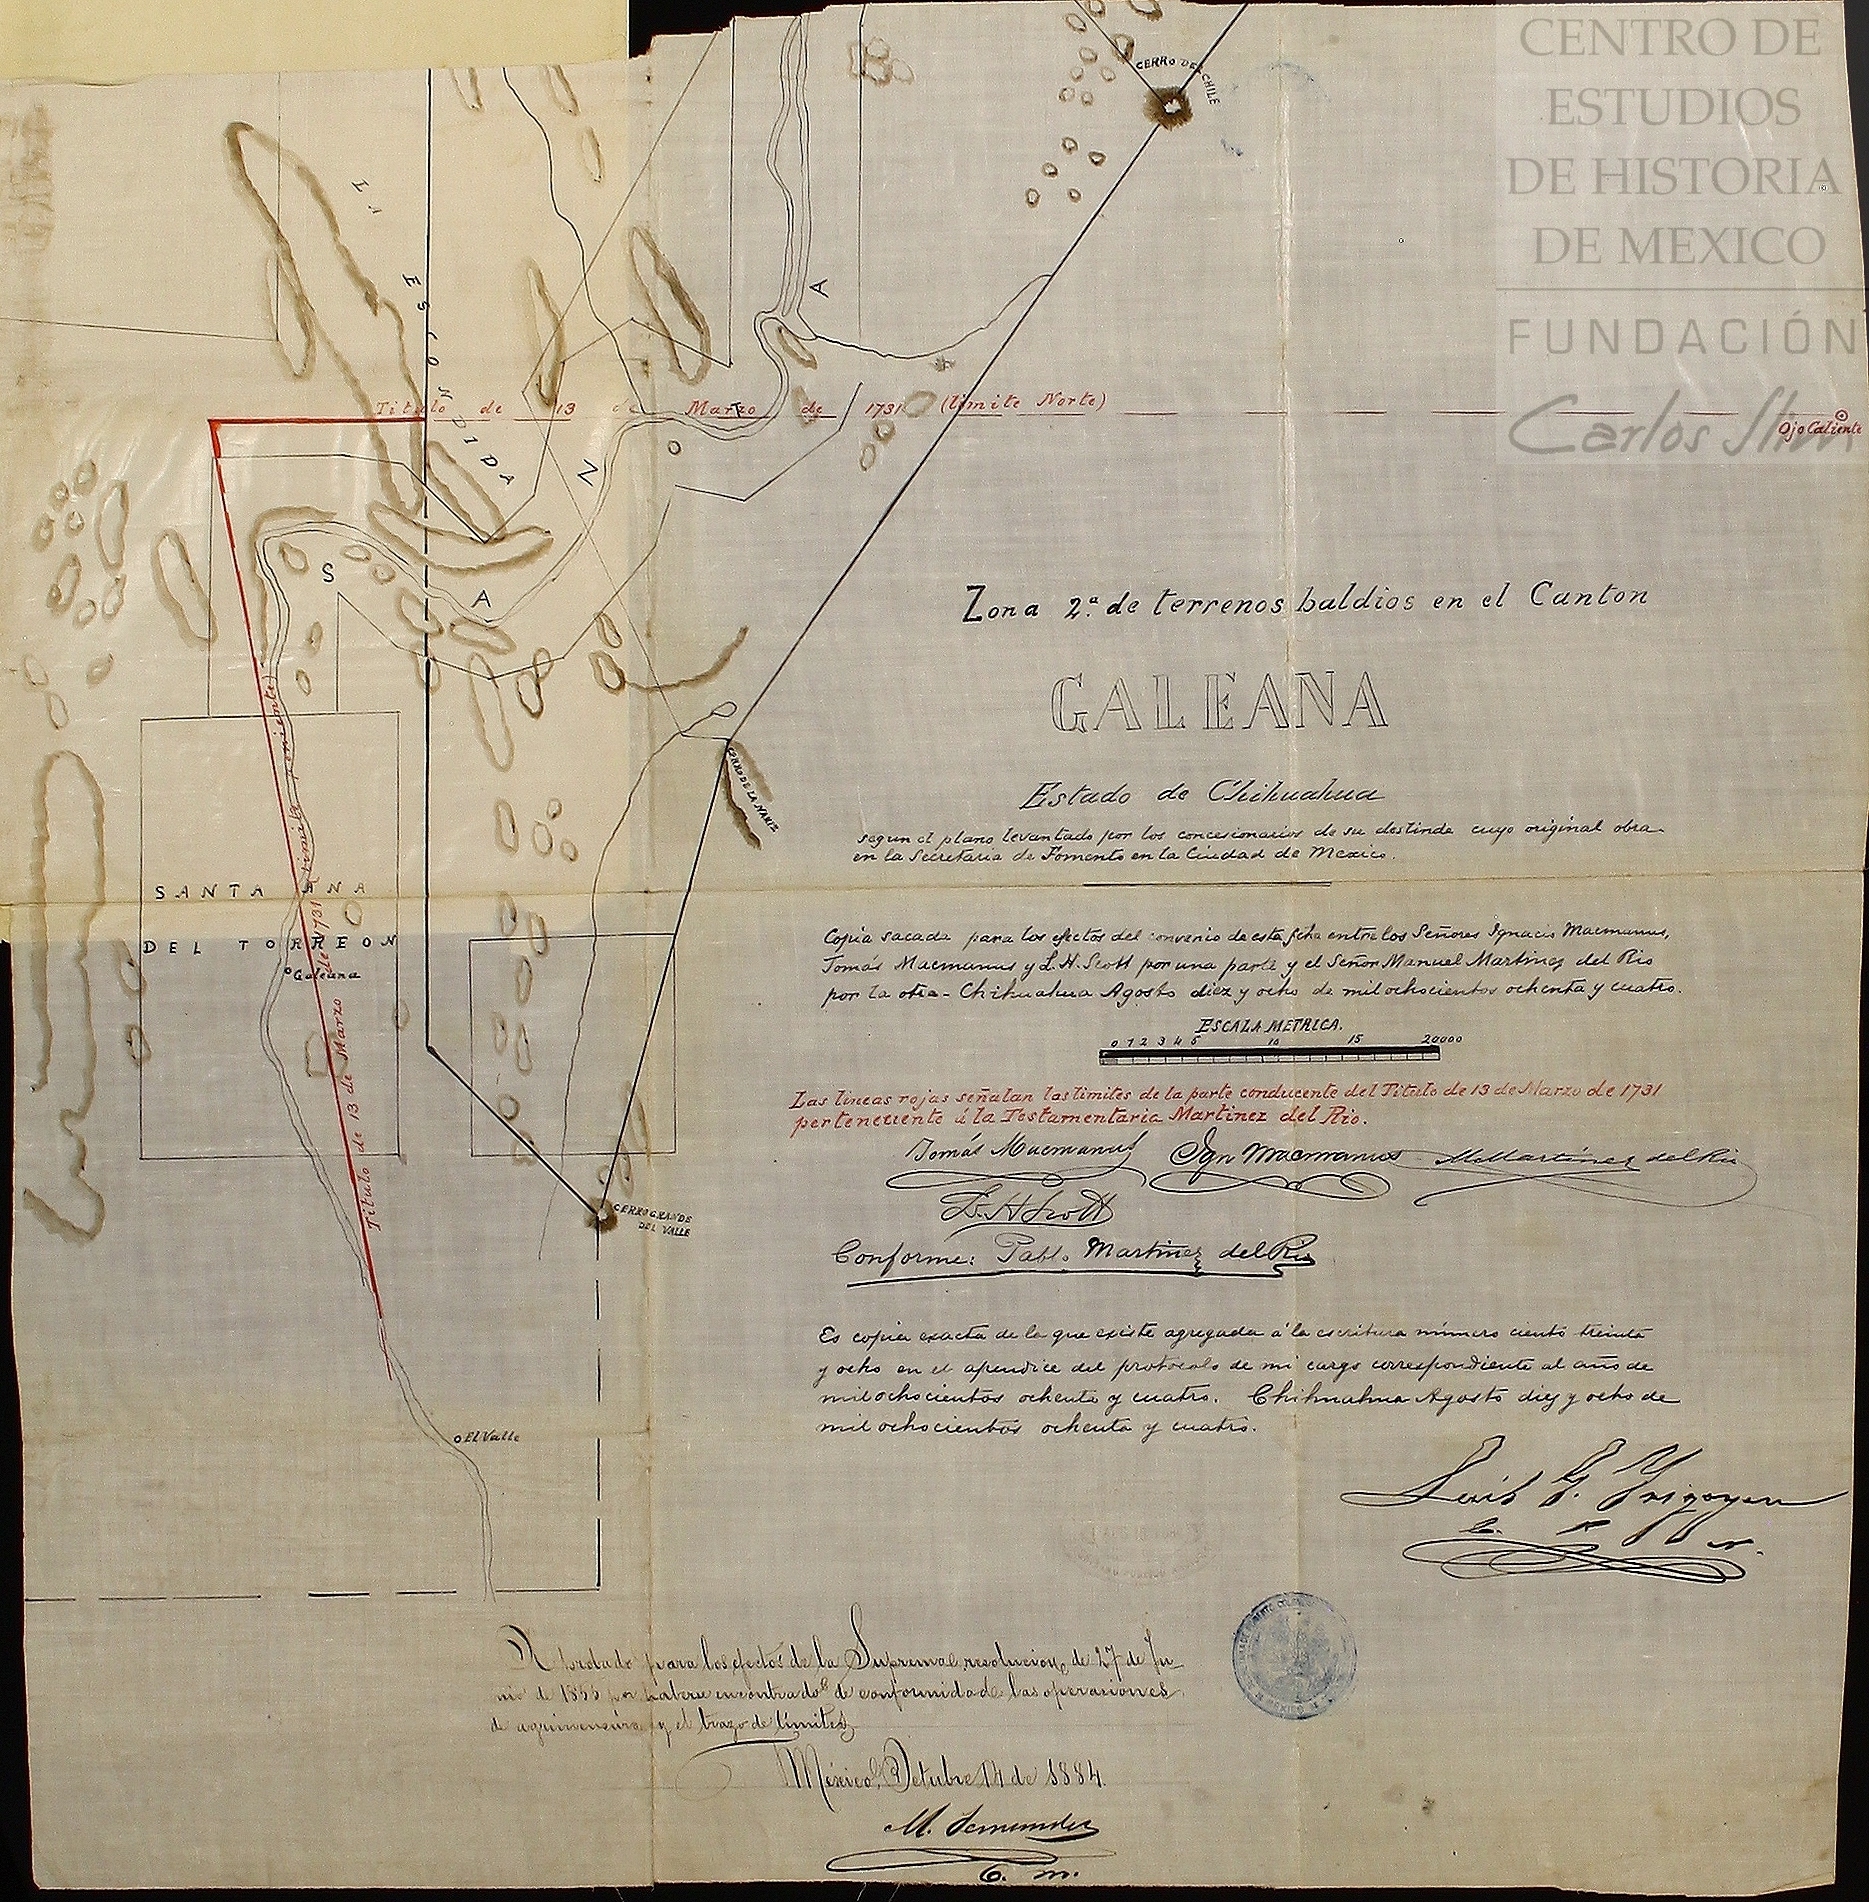 CENTRO DE
ESTUDIOS
DE HISTORIA
DE MEXICO
FUNDACIÓN
Carlos Slim
CERRO DEL CHILE
LA ESCONDIDA
Titulo de 13 de Marzo de 1731 (limite Norte)
Ojo Caliente
SANTA ANA
Zona 2.ª de terrenos baldios en el Canton
GALEANA
Estado de Chihuahua
segun el plano levantado por los concesionarios de su deslinde cuyo original obra
en la Secretaria de Fomento en la Ciudad de Mexico.
CERRO DE LA NARIZ
SANTA ANA
DEL TORREON
Galeana
Titulo de 13 de Marzo de 1731 (limite Poniente)
Copia sacada para los efectos del convenio de esta fcha entre los Señores Ignacio Macmanus,
Tomás Macmanus y L. H. Scott por una parte y el Señor Manuel Martinez del Rio
por la otra - Chihuahua Agosto diez y ocho de mil ochocientos ochenta y cuatro.
ESCALA METRICA.
0 1 2 3 4 5 10 15 20000
Las lineas rojas señalan los limites de la parte conducente del Titulo de 13 de Marzo de 1731
perteneciente á la Testamentaria Martinez del Rio.
Tomás Macmanus Ign Macmanus M Martinez del Rio
L. H Scott
CERRO GRANDE
DEL VALLE
Conforme: Pablo Martinez del Rio
Es copia exacta de la que existe agregada á la escritura número ciento treinta
y ocho en el apendice del protocolo de mi cargo correspondiente al año de
mil ochocientos ochenta y cuatro. Chihuahua Agosto diez y ocho de
mil ochocientos ochenta y cuatro.
El Valle
Luis G. Yrigoyen
Aprobado para los efectos de la Suprema resolucion de 27 de Ju-
nio de por haberse encontrado de conformidad las operaciones
de agrimensura y el trazo de límites
México, Octubre 14 de 1884.
M. Fernandez
O. m.